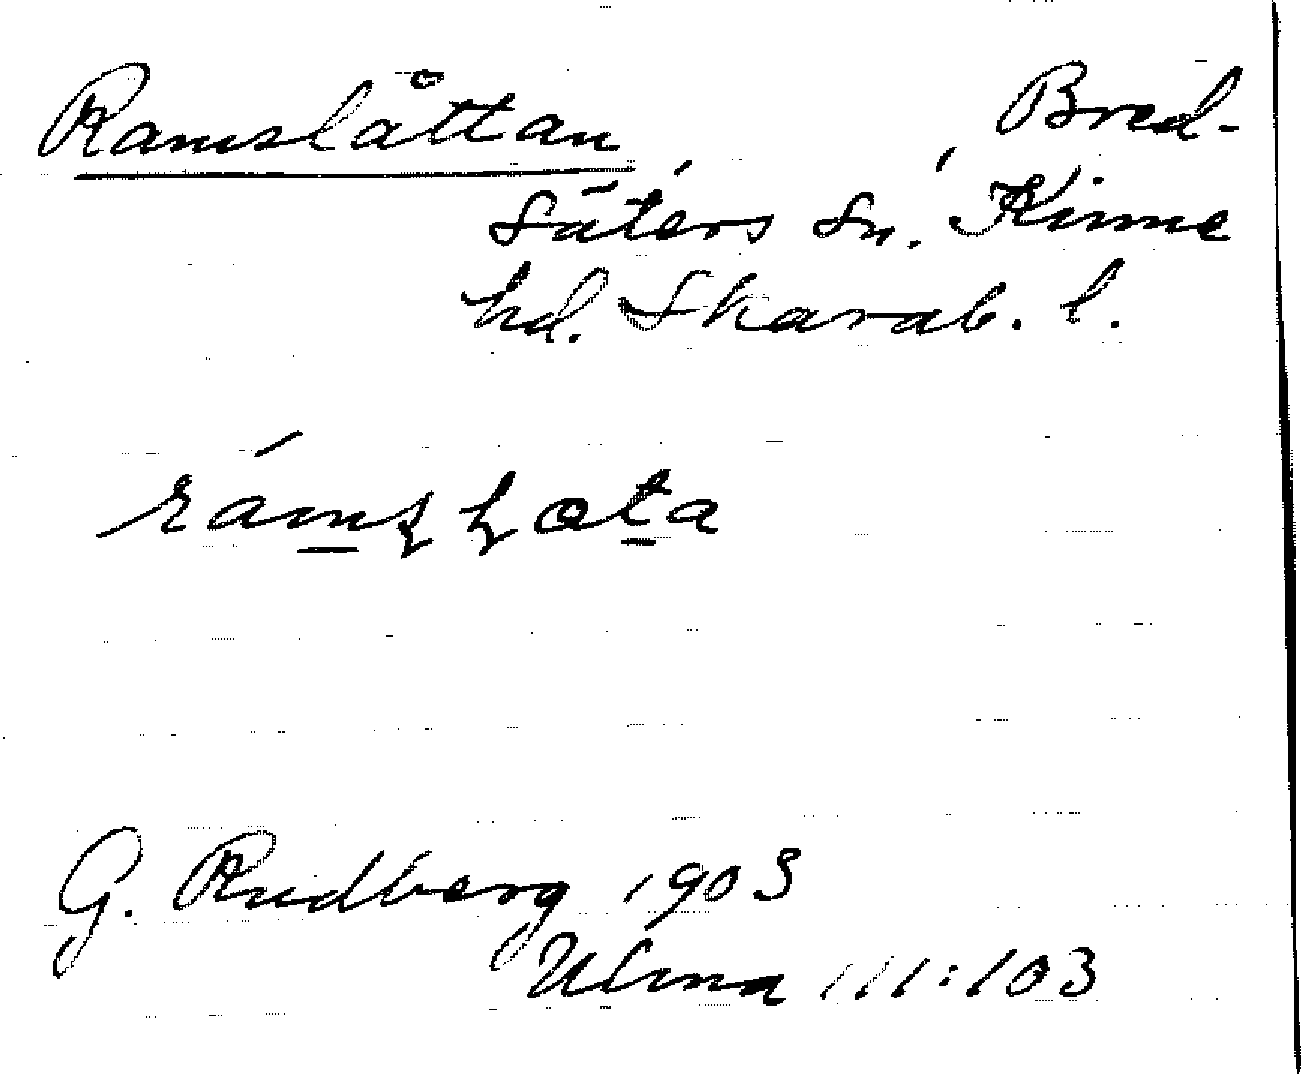 Ramslåttan, Bred-
säters sn. Kinne
hd. Skarab. l.
G. Rudberg 1903
Ulma 111:103